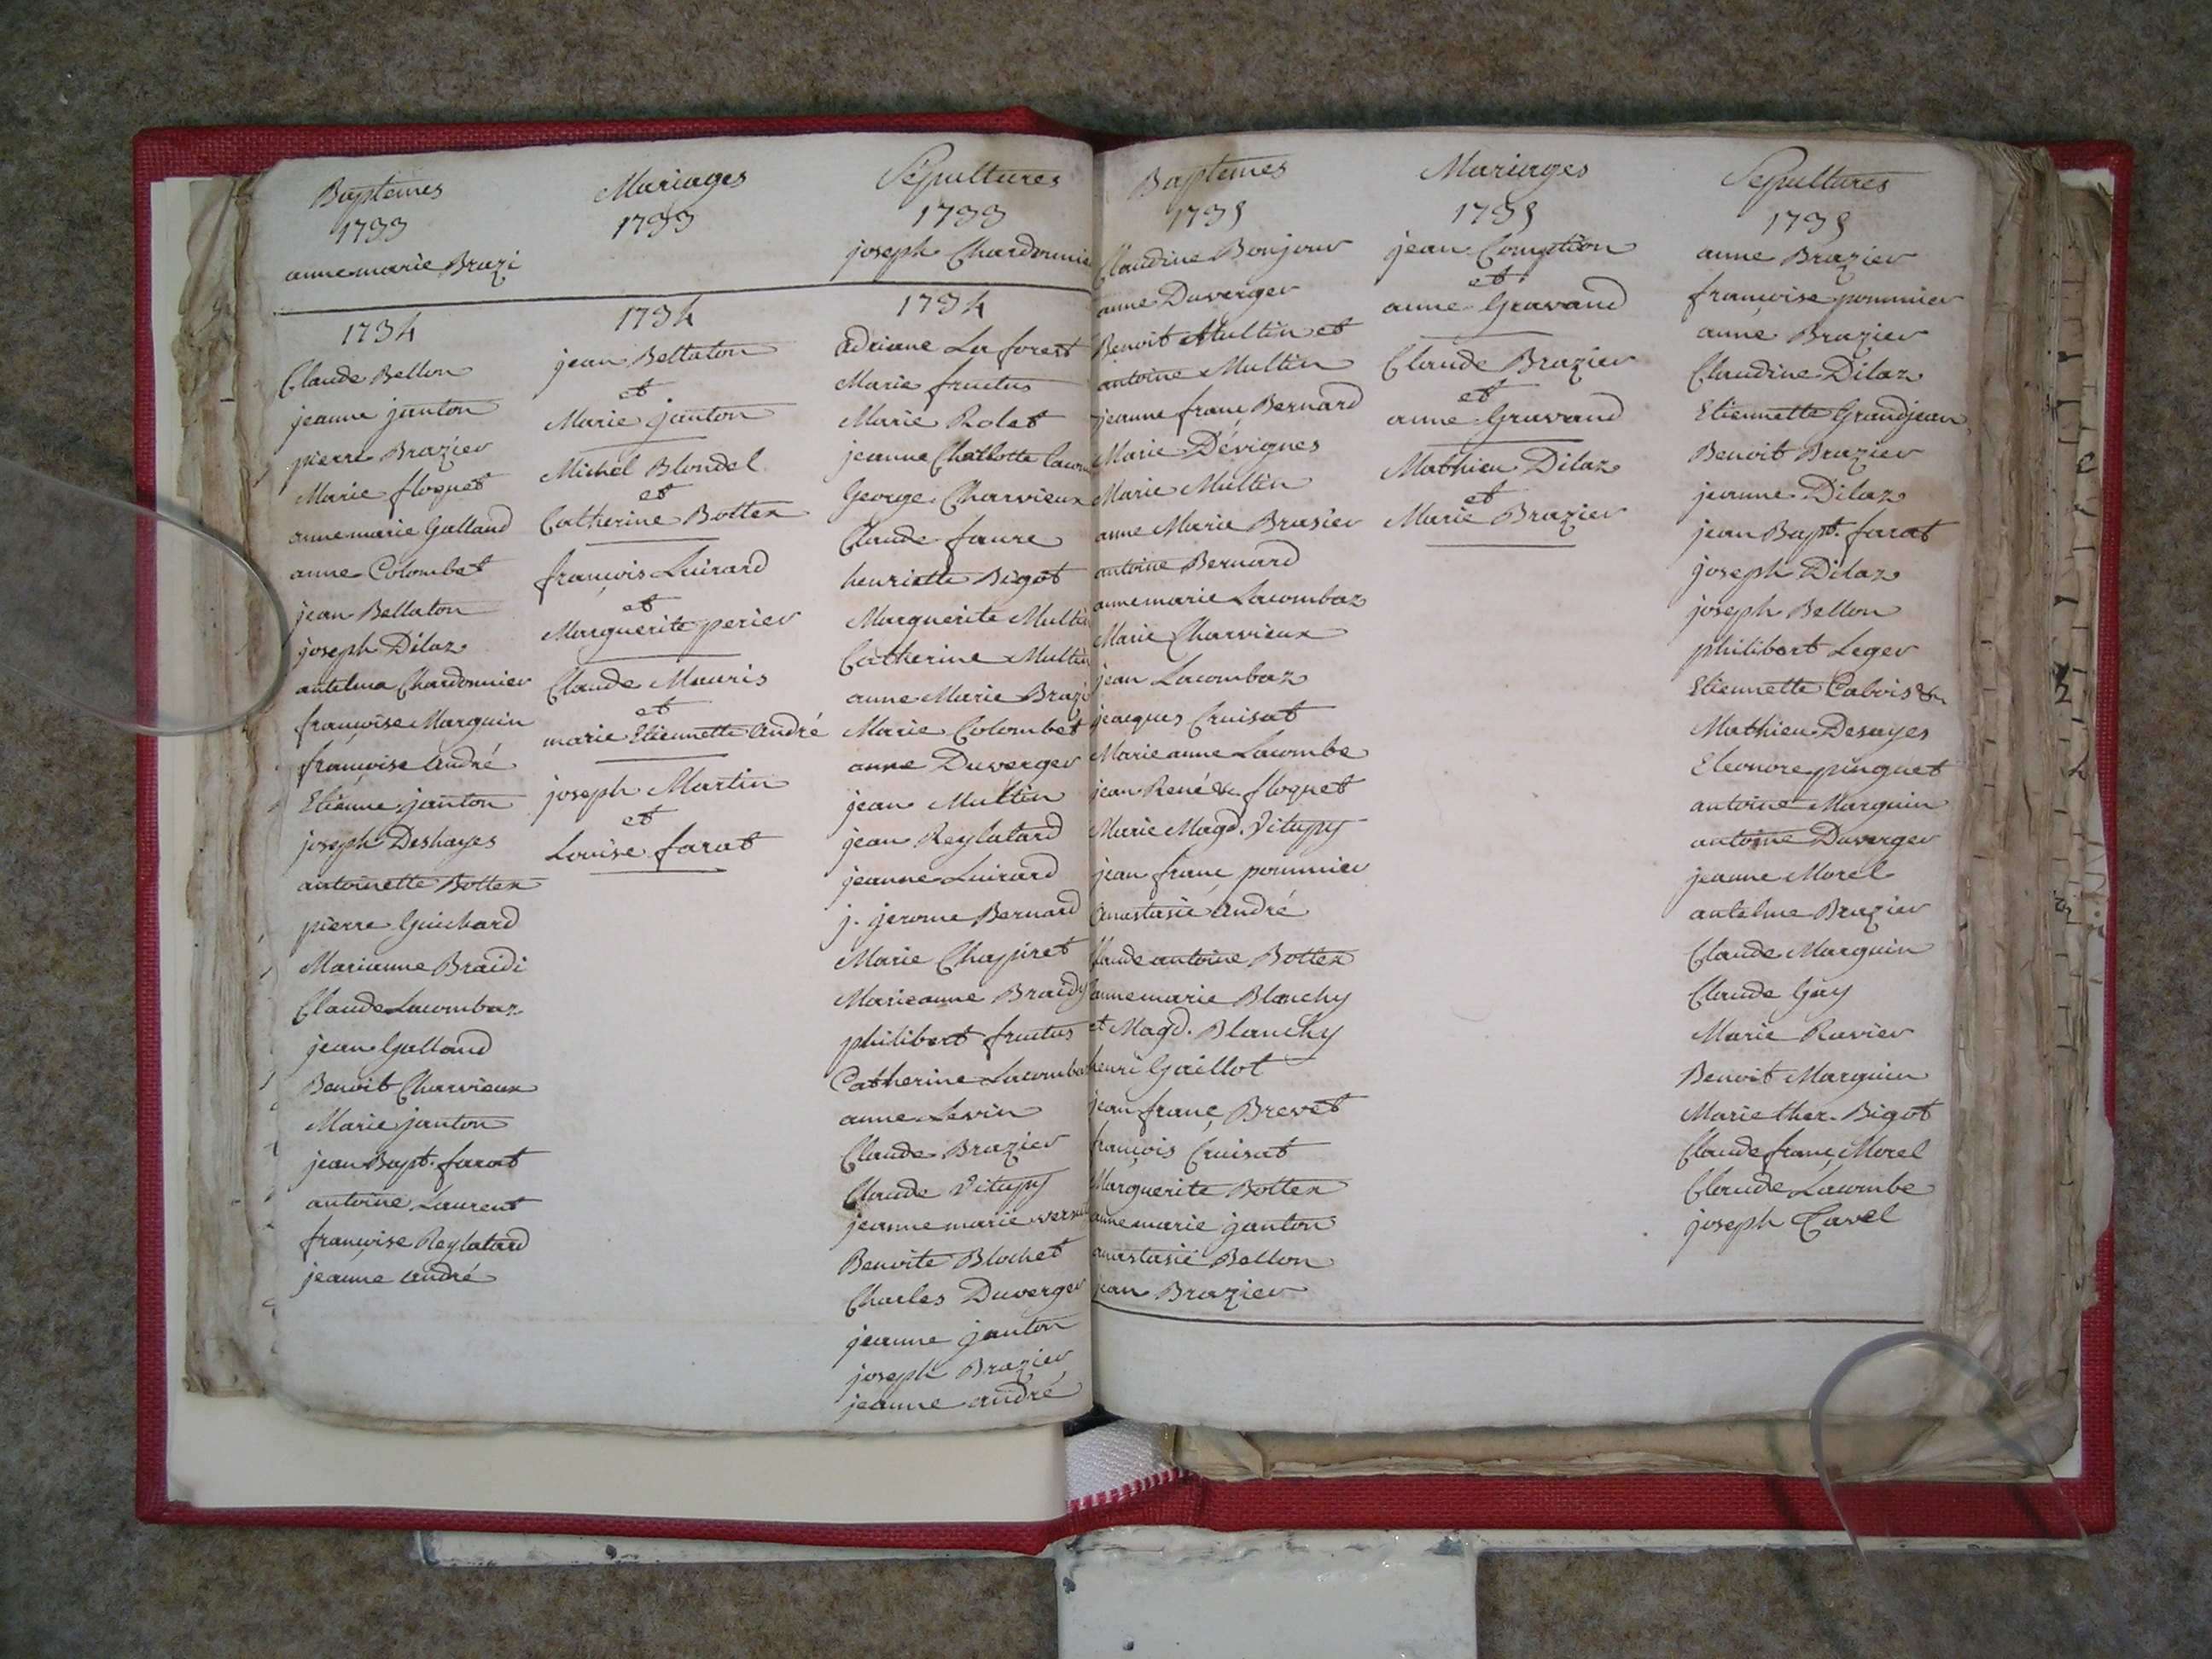 Baptemes
1733
anne marie Brazi
1734
Claude Bellon
jeanne janton
pierre Brazier
Marie floquet
anne marie Galland
anne Colombet
jean Bellaton
joseph Dilaz
antelma Chardonnier
françoise Marguin
françoise andré
Etienne janton
joseph Deshayes
antoinette Bottex
pierre Guichard
Marianne Braidi
Claude Lacombaz
jean Galland
Benoit Charvieux
Marie janton
jean Bapt. farat
antoine Laurent
françoise Reylatard
jeanne andré
Mariages
1733
1734
jean Bellaton
et
Marie janton
Michel Blondel
et
Catherine Bottex
françois Luirard
et
Marguerite perier
Claude Mauris
et
marie Etiennette andré
joseph Martin
et
Louise farat
Sépultures
1733
joseph Chardonnie
1734
adriane Laforest
Marie fructus
Marie Rolet
jeanne Charlotte
George Charvieux
Claude faure
henriette Bigot
Marguerite Multin
Catherine Multin
anne Marie Brazi
Marie Colombet
anne Duverger
jean Multin
jean Reylatard
jeanne Luirard
j. jerome Bernard
Marie Chapiret
Marieanne Braidy
philibert fructus
Catherine Lacomba
anne Levin
Claude Brazier
Claude Vitupy
jeanne marie
Benoite Blochet
Charles Duverger
jeanne janton
joseph Brazier
jeanne andré
Baptemes
1735
Claudine Bonjour
anne Duverger
Benoit Multin et
antoine Multin
jeanne franç Bernard
Marie Dévignes
Marie Multin
anne Marie Brasier
antoine Bernard
anne marie Lacombaz
Marie Charvieux
jean Lacombaz
jacques Cruisat
Marie anne Lacombe
jean René de floquet
Marie Magd. Vitupy
jean franç pommier
anastasie andré
Claude antoine Bottex
anne marie Blanchy
et Magd. Blanchy
henri Gaillot
jean franç Brevet
françois Cruisat
Marguerite Bottex
anne marie janton
anastasie Bellon
jean Brazier
Mariages
1735
jean Comption
et
anne Gravand
Claude Brazier
et
anne Gravand
Mathieu Dilaz
et
Marie Brazier
Sepultures
1735
anne Brazier
françoise pommier
anne Brazier
Claudine Dilaz
Etiennette Grandjean
Benoit Brazier
jeanne Dilaz
jean Bapt. farat
joseph Dilaz
joseph Bellon
philibert Leger
Etiennette
Mathieu Desayes
Eleonore pinguet
antoine Marguin
antoine Duverger
jeanne Morel
antelme Brazier
Claude Marguin
Claude Gay
Marie Ravier
Benoit Marguin
Marie ther. Bigot
Claude franç Morel
Claude Lacombe
joseph Cavel